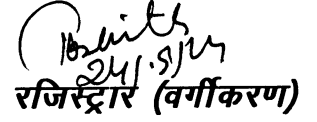 24/5/24
रजिस्ट्रार (वर्गीकरण)